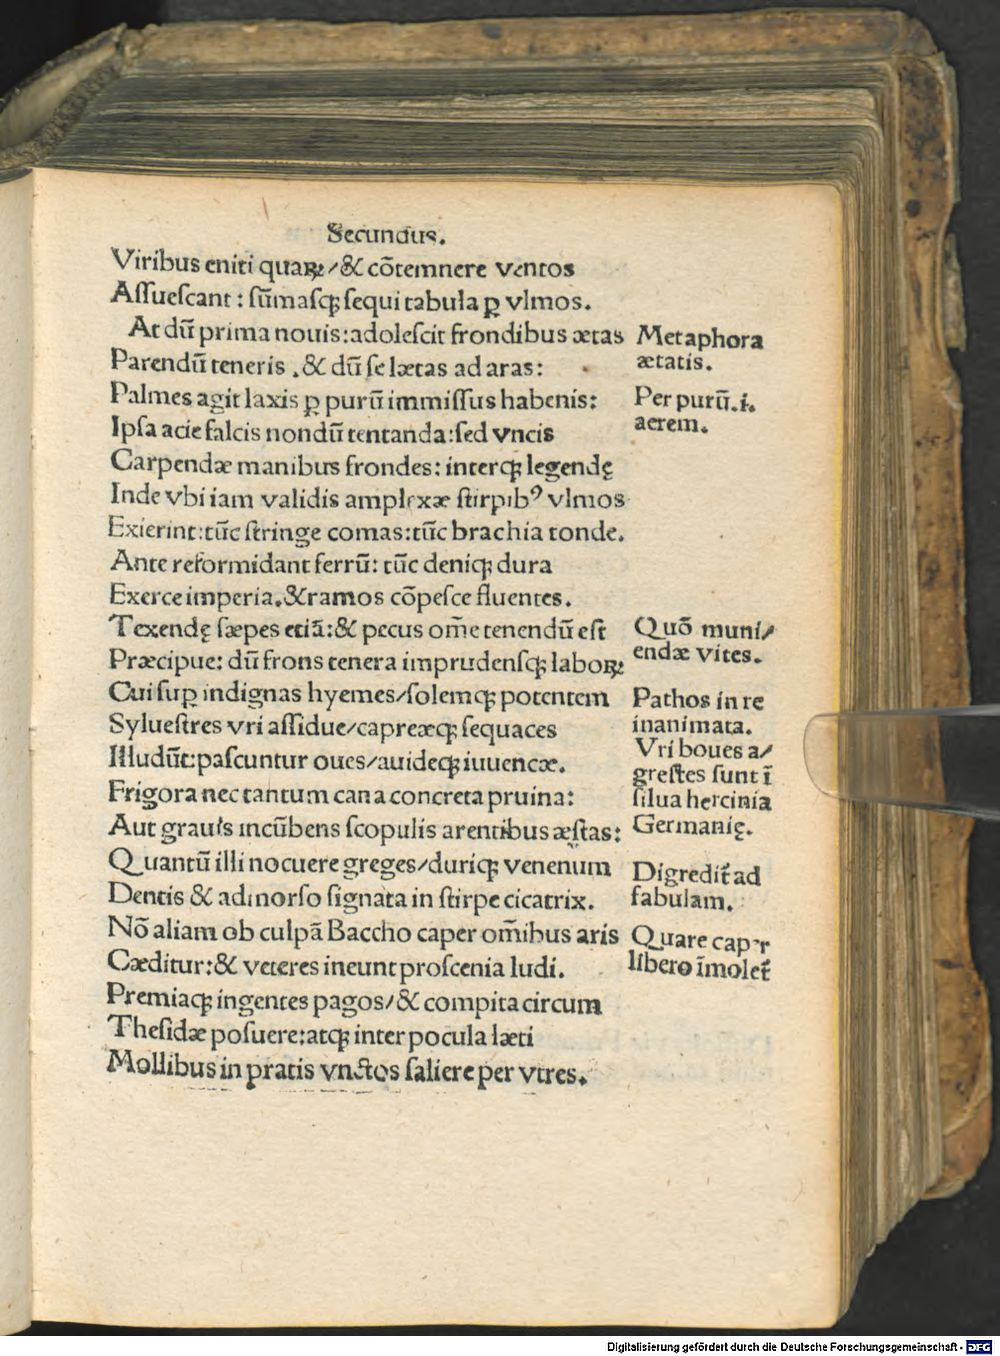 Secundus.
Viribus eniti quaꝝ/& cõtemnere ventos
Aſſueſcant: ſũmaſqꝫ ſequi tabula ꝑ vlmos.
At dũ prima nouis:adoleſcit frondibus ætas
Parendũ teneris .& dũ ſe lætas ad aras:
Palmes agit laxis ꝑ purũ immiſſus habenis:
Ipſa acie falcis nondũ tentanda:ſed vncis
Carpendæ manibus frondes: interqꝫ legendę
Inde vbi iam validis amplexæ ſtirpibꝰ vlmos
Exierint:tũc ſtringe comas:tũc brachia tonde.
Ante reformidant ferrũ: tũc deniqꝫ dura
Exerce imperia.&ramos cõpeſce fluentes.
Texendę ſæpes etiã:& pecus om̃e tenendũ eſt
Præcipue: dũ frons tenera imprudenſqꝫ laboꝝ
Cui ſuꝑ indignas hyemes/ſolemqꝫ potentem
Sylueſtres vri aſſidue/capreæqꝫ ſequaces
Illudũt:paſcuntur oues/auideqꝫ iuuencæ.
Frigora nec tantum cana concreta pruina:
Aut grauis incũbens ſcopulis arentibus æſtas:
Quantũ illi nocuere greges/duriqꝫ venenum
Dentis & admorſo ſignata in ſtirpe cicatrix.
Nõ aliam ob culpã Baccho caper om̃ibus aris
Cæditur:& veteres ineunt proſcenia ludi.
Premiaqꝫ ingentes pagos/& compita circum
Theſidæ poſuere:atqꝫ inter pocula læti
Mollibus in pratis vnctos ſaliere per vtres.
Metaphora
ætatis.
Per purũ.i.
aerem.
Quõ muni/
endæ vites.
Pathos in re
inanimata.
Vri boues a/
greſtes ſunt ĩ
ſilua hercinia
Germanię.
Digredit̃ ad
fabulam.
Quare caper
libero ĩmolet̃
Digitalisierung gefördert durch die Deutsche Forschungsgemeinschaft - DFG